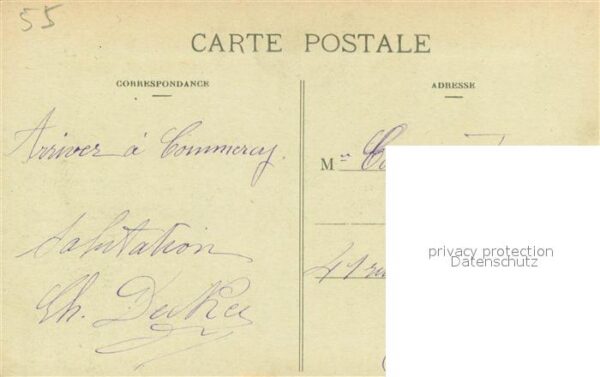 55
CARTE POSTALE
CORRESPONDANCE
ADRESSE
Arriver à Commercy.
M
Salutation
41 rue
Ch.
privacy protection
Datenschutz